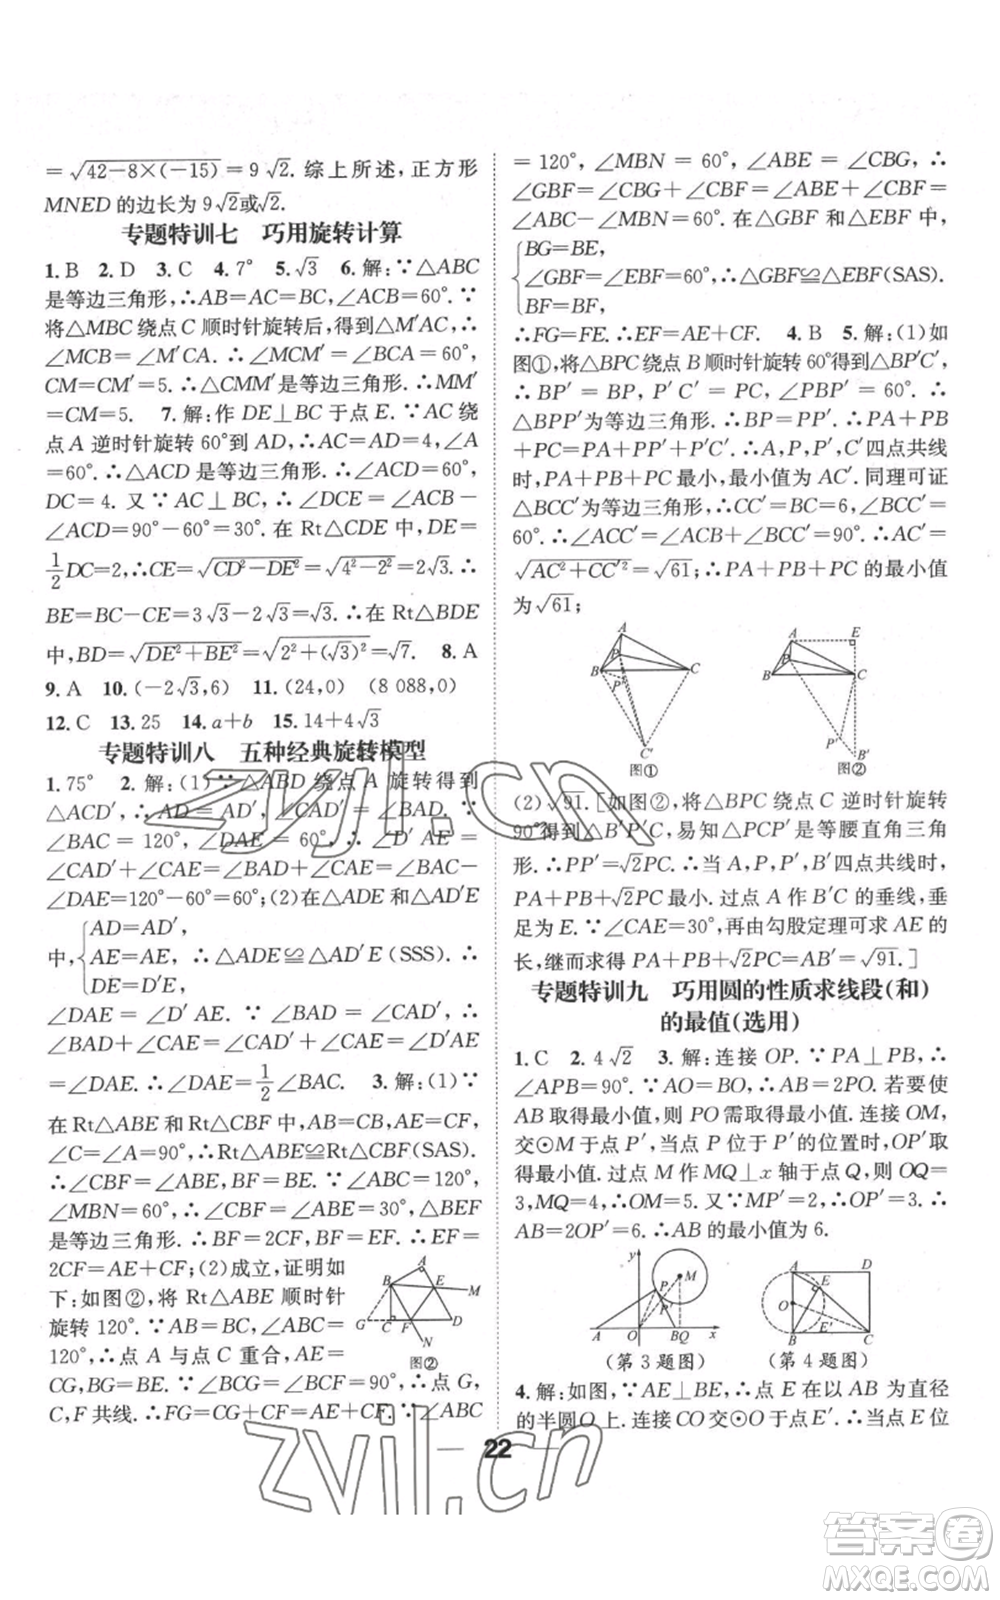 =√(42-8×(-15))=9√2. 综上所述,正方形
MNED的边长为9√2或√2.
专题特训七 巧用旋转计算
1. B 2. D 3. C 4. 7° 5. √3 6. 解:∵△ABC
是等边三角形,∴AB=AC=BC,∠ACB=60°. ∵
将△MBC绕点C顺时针旋转后,得到△M′AC,∴
∠MCB=∠M′CA. ∴∠MCM′=∠BCA=60°,
CM=CM′=5. ∴△CMM′是等边三角形. ∴MM′
=CM=5. 7. 解:作DE⊥BC于点E. ∵AC绕
点A逆时针旋转60°到AD,∴AD=AC=4,∠A
=60°. ∴△ACD是等边三角形. ∴∠ACD=60°,
DC=4. 又∵AC⊥BC,∴∠DCE=∠ACB-
∠ACD=90°-60°=30°. 在Rt△CDE中,DE=
1/2DC=2,∴CE=√(CD²-DE²)=√(4²-2²)=2√3. ∴
BE=BC-CE=3√3-2√3=√3. ∴在Rt△BDE
中,BD=√(DE²+BE²)=√(2²+(√3)²)=√7. 8. A
9. A 10. (-2√3,6) 11. (24,0) (8 088,0)
12. C 13. 25 14. a+b 15. 14+4√3
专题特训八 五种经典旋转模型
1. 75° 2. 解:(1)∵△ABD绕点A旋转得到
△ACD′,∴AD=AD′,∠CAD′=∠BAD. ∵
∠BAC=120°,∠DAE=60°,∴∠D′AE=
∠CAD′+∠CAE=∠BAD+∠CAE=∠BAC-
∠DAE=120°-60°=60°;(2)在△DAE和△D′AE
中,{AD=AD′,
AE=AE,
DE=D′E,
∴△ADE≌△AD′E(SSS). ∴
∠DAE=∠D′AE. ∵∠BAD=∠CAD′,∴
∠BAD+∠CAE=∠CAD′+∠CAE=∠D′AE=
∠DAE. ∴∠DAE=1/2∠BAC. 3. 解:(1)∵
在Rt△ABE和Rt△CBF中,AB=CB,AE=CF,
∠C=∠A=90°,∴Rt△ABE≌Rt△CBF(SAS).
∴∠CBF=∠ABE,BE=BF. ∵∠ABC=120°,
∠MBN=60°,∴∠CBF=∠ABE=30°,△BEF
是等边三角形. ∴BF=2CF,BF=EF. ∴EF=
2CF=AE+CF;(2)成立,证明如
下:如图②,将Rt△ABE顺时针
旋转120°. ∵AB=BC,∠ABC=
120°,∴点A与点C重合,AE=
CG,BG=BE. ∵∠BCG=
∠BCF=90°,∴点G,
C,F共线. ∴FG=CG+CF=AE+CF. ∵∠ABC
A B E M G C F D N
图②
=120°,∠MBN=60°,∠ABE=∠CBG,∴
∠GBF=∠CBG+∠CBF=∠ABE+
∠CBF=∠ABC-∠MBN=60°. 在△GBF和△EBF中,
{BG=BE,
∠GBF=∠EBF=60°,∴△GBF≌△EBF(SAS).
BF=BF,
∴FG=FE. ∴EF=AE+CF. 4. B 5. 解:(1)如
图①,将△BPC绕点B顺时针旋转60°得到△BP′C′,
∴BP′=BP,P′C′=PC,∠PBP′=60°. ∴
△BPP′为等边三角形. ∴BP=PP′. ∴PA+PB
+PC=PA+PP′+P′C′. ∴A,P,P′,C′四点共线
时,PA+PB+PC最小,最小值为AC′. 同理可证
△BCC′为等边三角形,∴CC′=BC=5,∠BCC′=
60°. ∴∠ACC′=∠ACB+∠BCC′=90°. ∴AC′
=√(AC²+CC′²)=√61;∴PA+PB+PC的最小值
为√61;
A B P C P′ C′
图①
A E B P C P′ B′
图②
(2)√91. [如图②,将△BPC绕点C逆时针旋转
90°得到△B′P′C,易知△PCP′是等腰直角三角
形. ∴PP′=√2PC. ∴当A,P,P′,B′四点共线时,
PA+PB+√2PC最小. 过点A作B′C的垂线,垂
足为E. ∵∠CAE=30°,再由勾股定理可求AE的
长,继而求得PA+PB+√2PC=AB′=√91. ]
专题特训九 巧用圆的性质求线段(和)
的最值(选用)
1. C 2. 4√2 3. 解:连接OP. ∵PA⊥PB,∴
∠APB=90°. ∵AO=BO,∴AB=2PO. 若要使
AB取得最小值,则PO需取得最小值. 连接OM,
交⊙M于点P′,当点P位于P′的位置时,OP′取
得最小值. 过点M作MQ⊥x轴于点Q,则OQ=
3,MQ=4,∴OM=5. 又∵MP′=2,∴OP′=3. ∴
AB=2OP′=6. ∴AB的最小值为6.
y P M P′ A O B Q x
(第3题图)
A D E O E′ B C
(第4题图)
4. 解:如图,∵AE⊥BE,∴点E在以AB为直径
的半圆O上. 连接CO交⊙O于点E′. ∴当点E位
22
zyjl.cn
zyjl.cn
答案卷
MXQE.COM